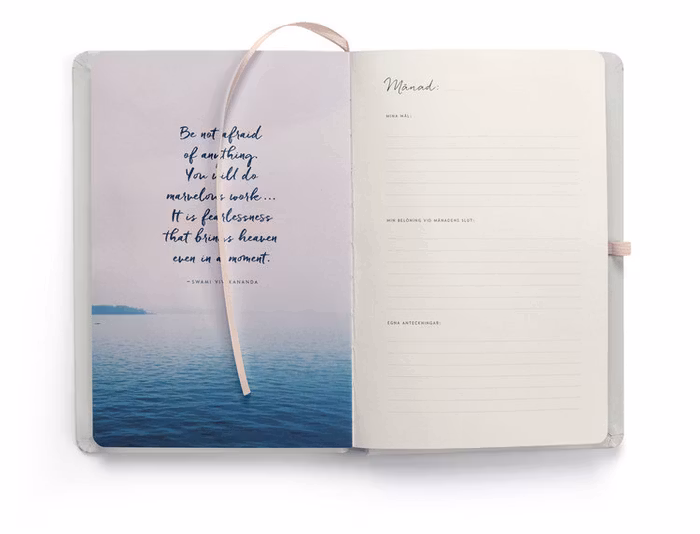 Be not afraid
of anything.
You will do
marvelous work...
It is fearlessness
that brings heaven
even in a moment.
—SWAMI VIVEKANANDA
Månad:
MINA MÅL:
MIN BELÖNING VID MÅNADENS SLUT:
EGNA ANTECKNINGAR: